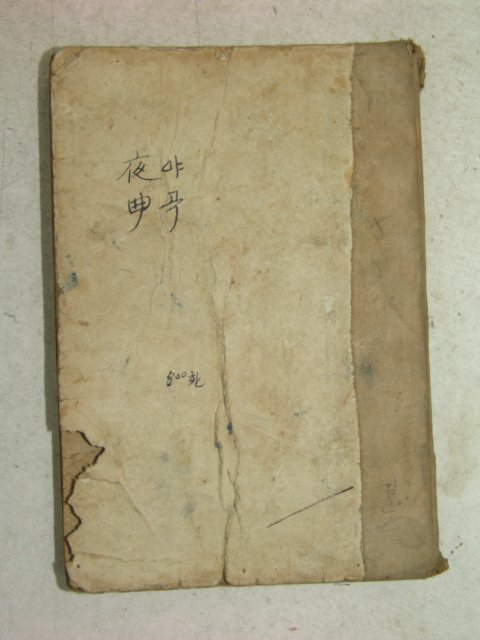 夜曲
야곡
500환